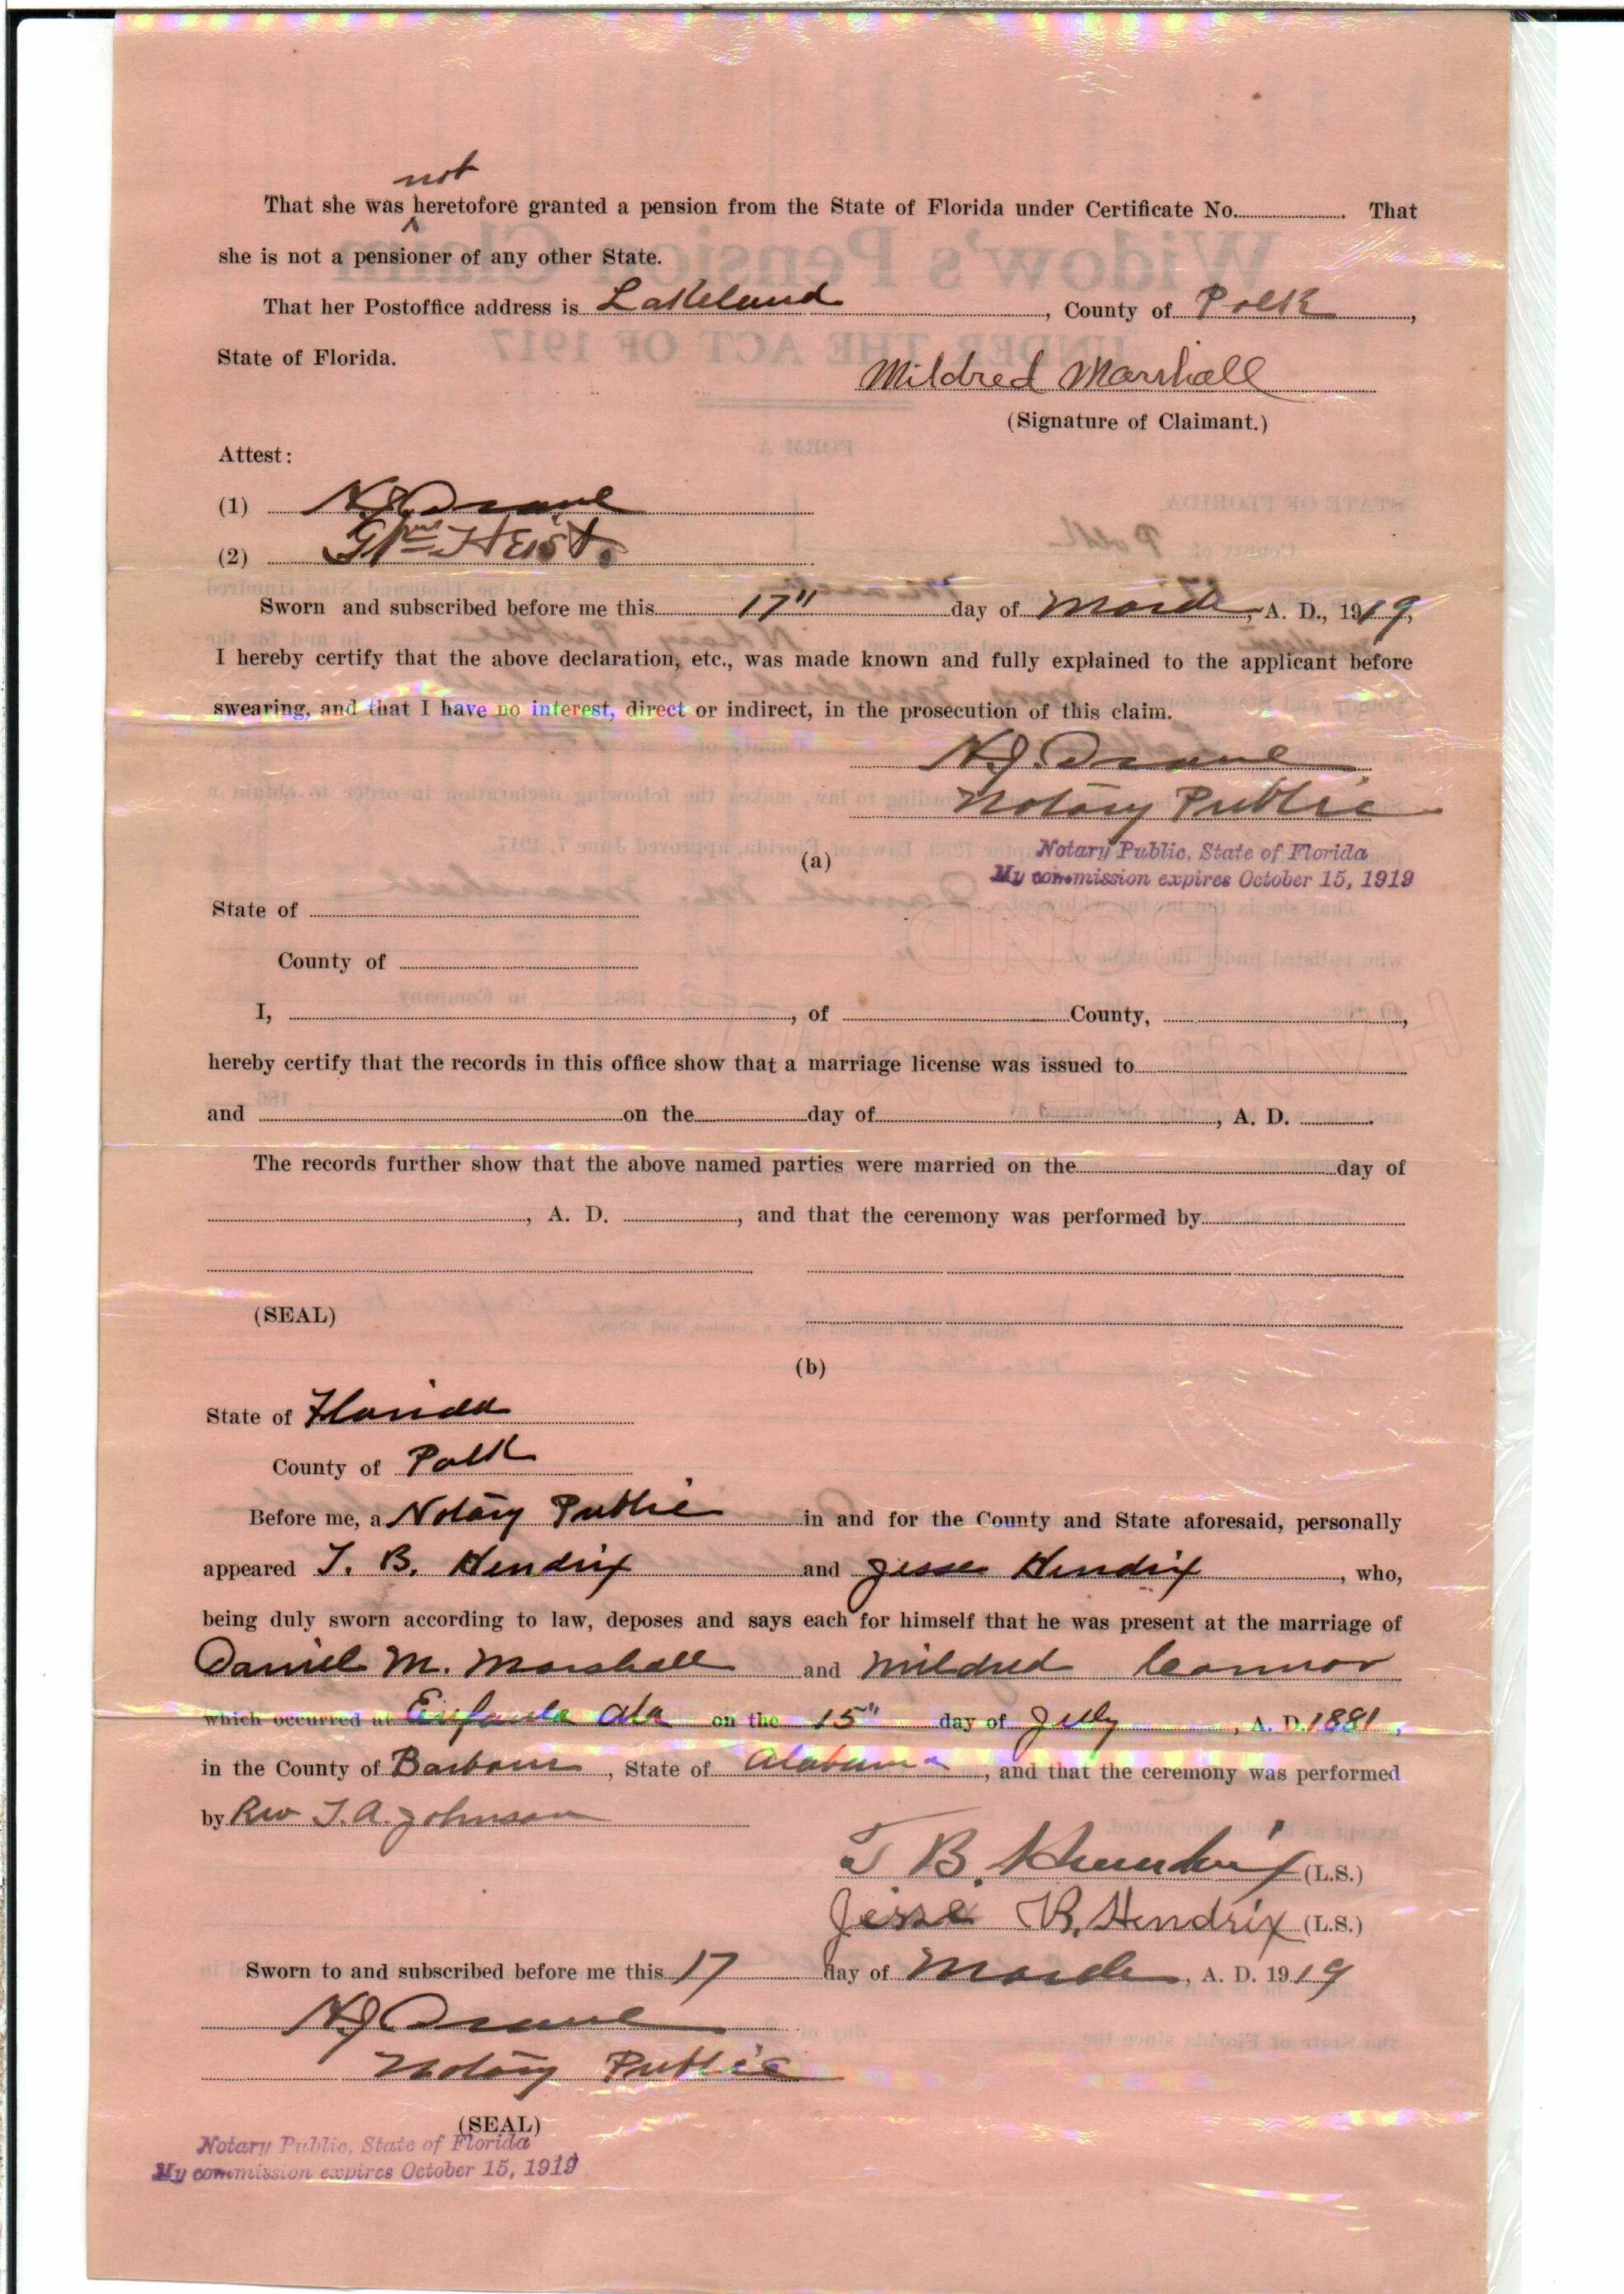 not
That she was ^ heretofore granted a pension from the State of Florida under Certificate No. . That
she is not a pensioner of any other State.
That her Postoffice address is Lakeland, County of Polk,
State of Florida.
Mildred Marshall
(Signature of Claimant.)
Attest:
(1)
(2)
Sworn and subscribed before me this 17" day of March, A. D., 1919,
I hereby certify that the above declaration, etc., was made known and fully explained to the applicant before
swearing, and that I have no interest, direct or indirect, in the prosecution of this claim.
Notary Public
Notary Public, State of Florida
(a)
My commission expires October 15, 1919
State of
County of
I, , of County, ,
hereby certify that the records in this office show that a marriage license was issued to
and on the day of , A. D. .
The records further show that the above named parties were married on the day of
, A. D. , and that the ceremony was performed by
(SEAL)
(b)
State of Florida
County of Polk
Before me, a Notary Public in and for the County and State aforesaid, personally
appeared T. B. Hendrix and Jesse Hendrix, who,
being duly sworn according to law, deposes and says each for himself that he was present at the marriage of
Daniel M. Marshall and Mildred Connor
which occurred at Eufaula Ala on the 15" day of July, A. D. 1881,
in the County of Barbour, State of Alabama, and that the ceremony was performed
by Rev T. A. Johnson
T B. Hendrix (L.S.)
Jesse R. Hendrix (L.S.)
Sworn to and subscribed before me this 17 day of March, A. D. 1919
Notary Public
(SEAL)
Notary Public, State of Florida
My commission expires October 15, 1919